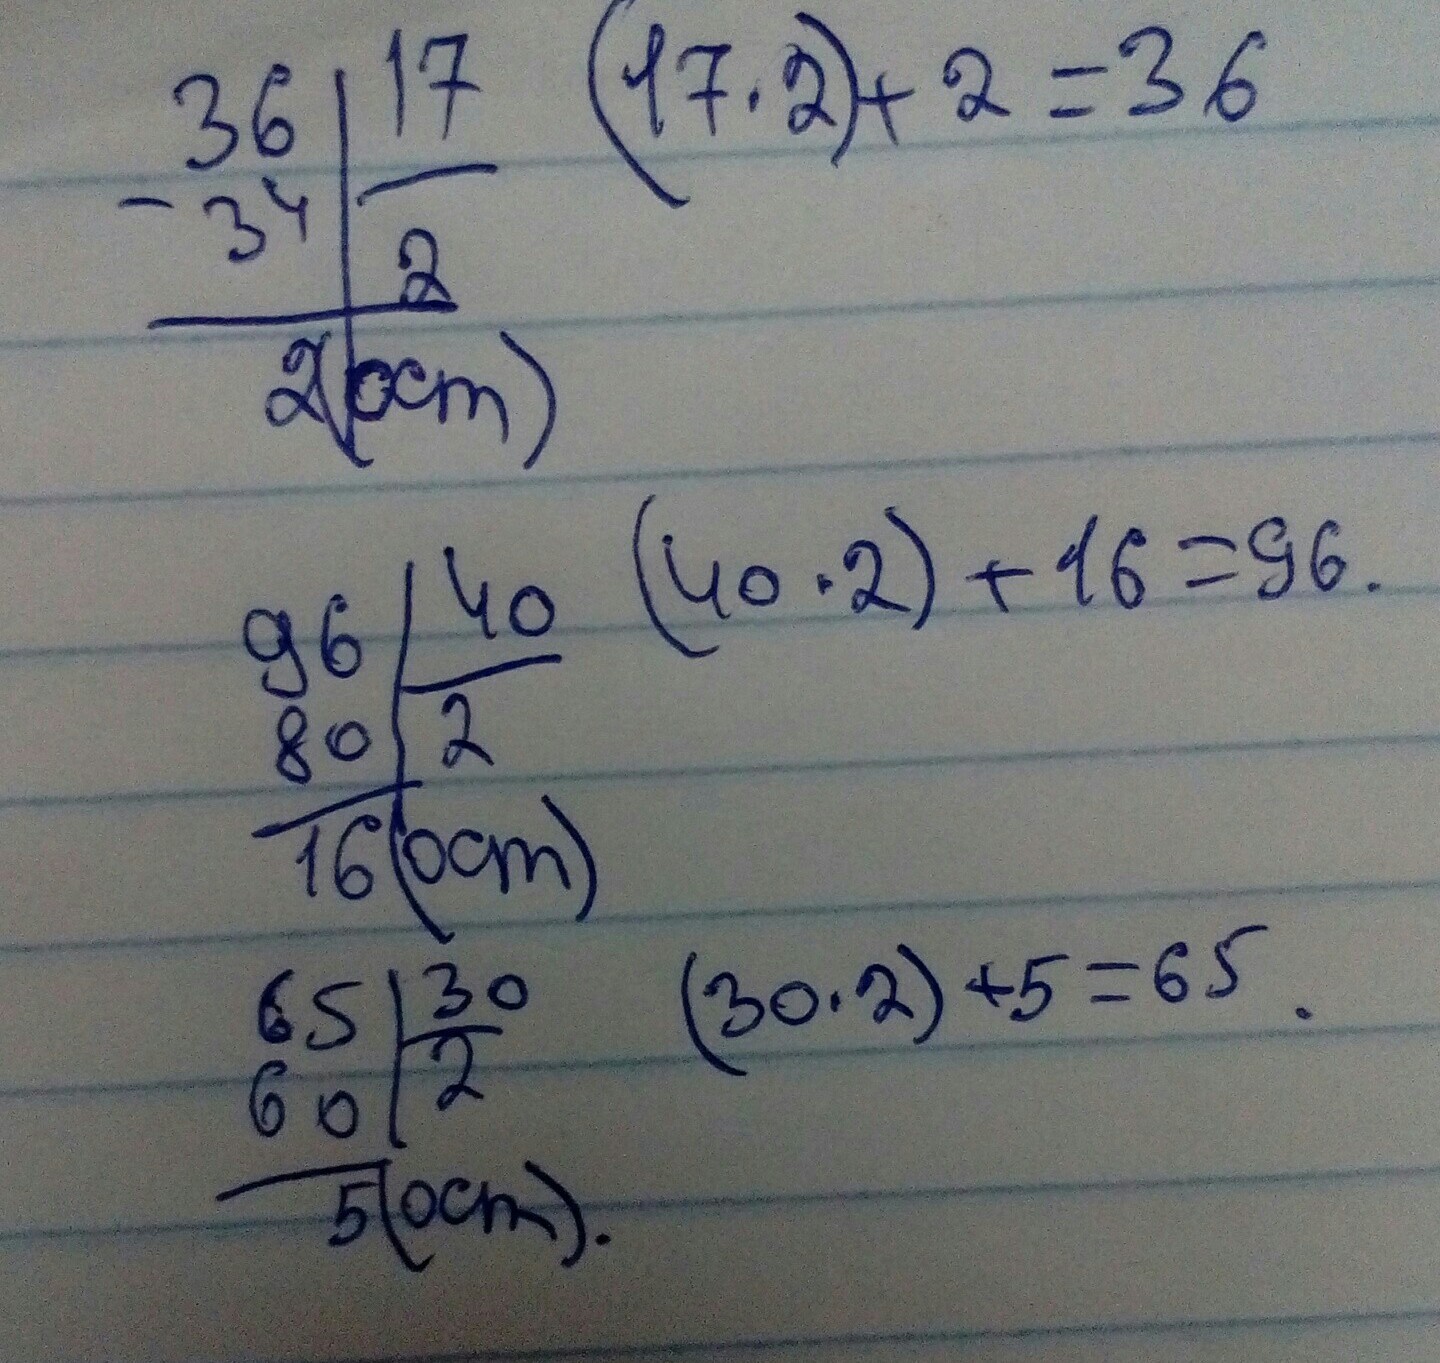 36 | 17 (17·2)+2=36
-34 | 2
2(ост)
96 | 40 (40·2)+16=96.
80 | 2
16(ост)
65 | 30 (30·2)+5=65.
60 | 2
5(ост).